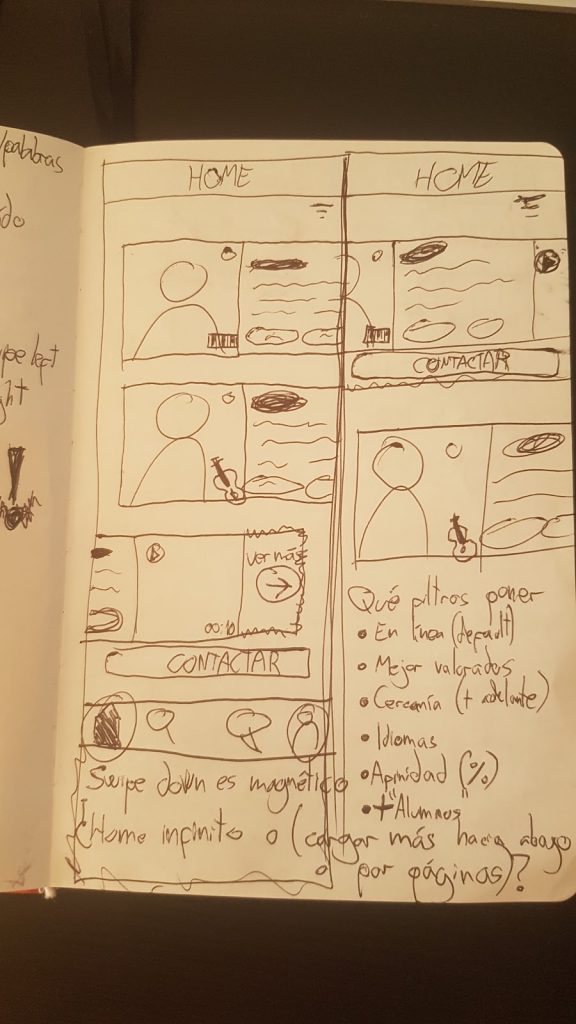 /palabras
HOME
HOME
CONTACTAR
ver más
00:10
CONTACTAR
Qué filtros poner
• En línea (default)
• Mejor valorados
• Cercanía (+ adelante)
• Idiomas
• Afinidad (%)
• + "Alumnos"
Swipe down es magnético
¿Home infinito o (cargar más hacia abajo
por páginas)?